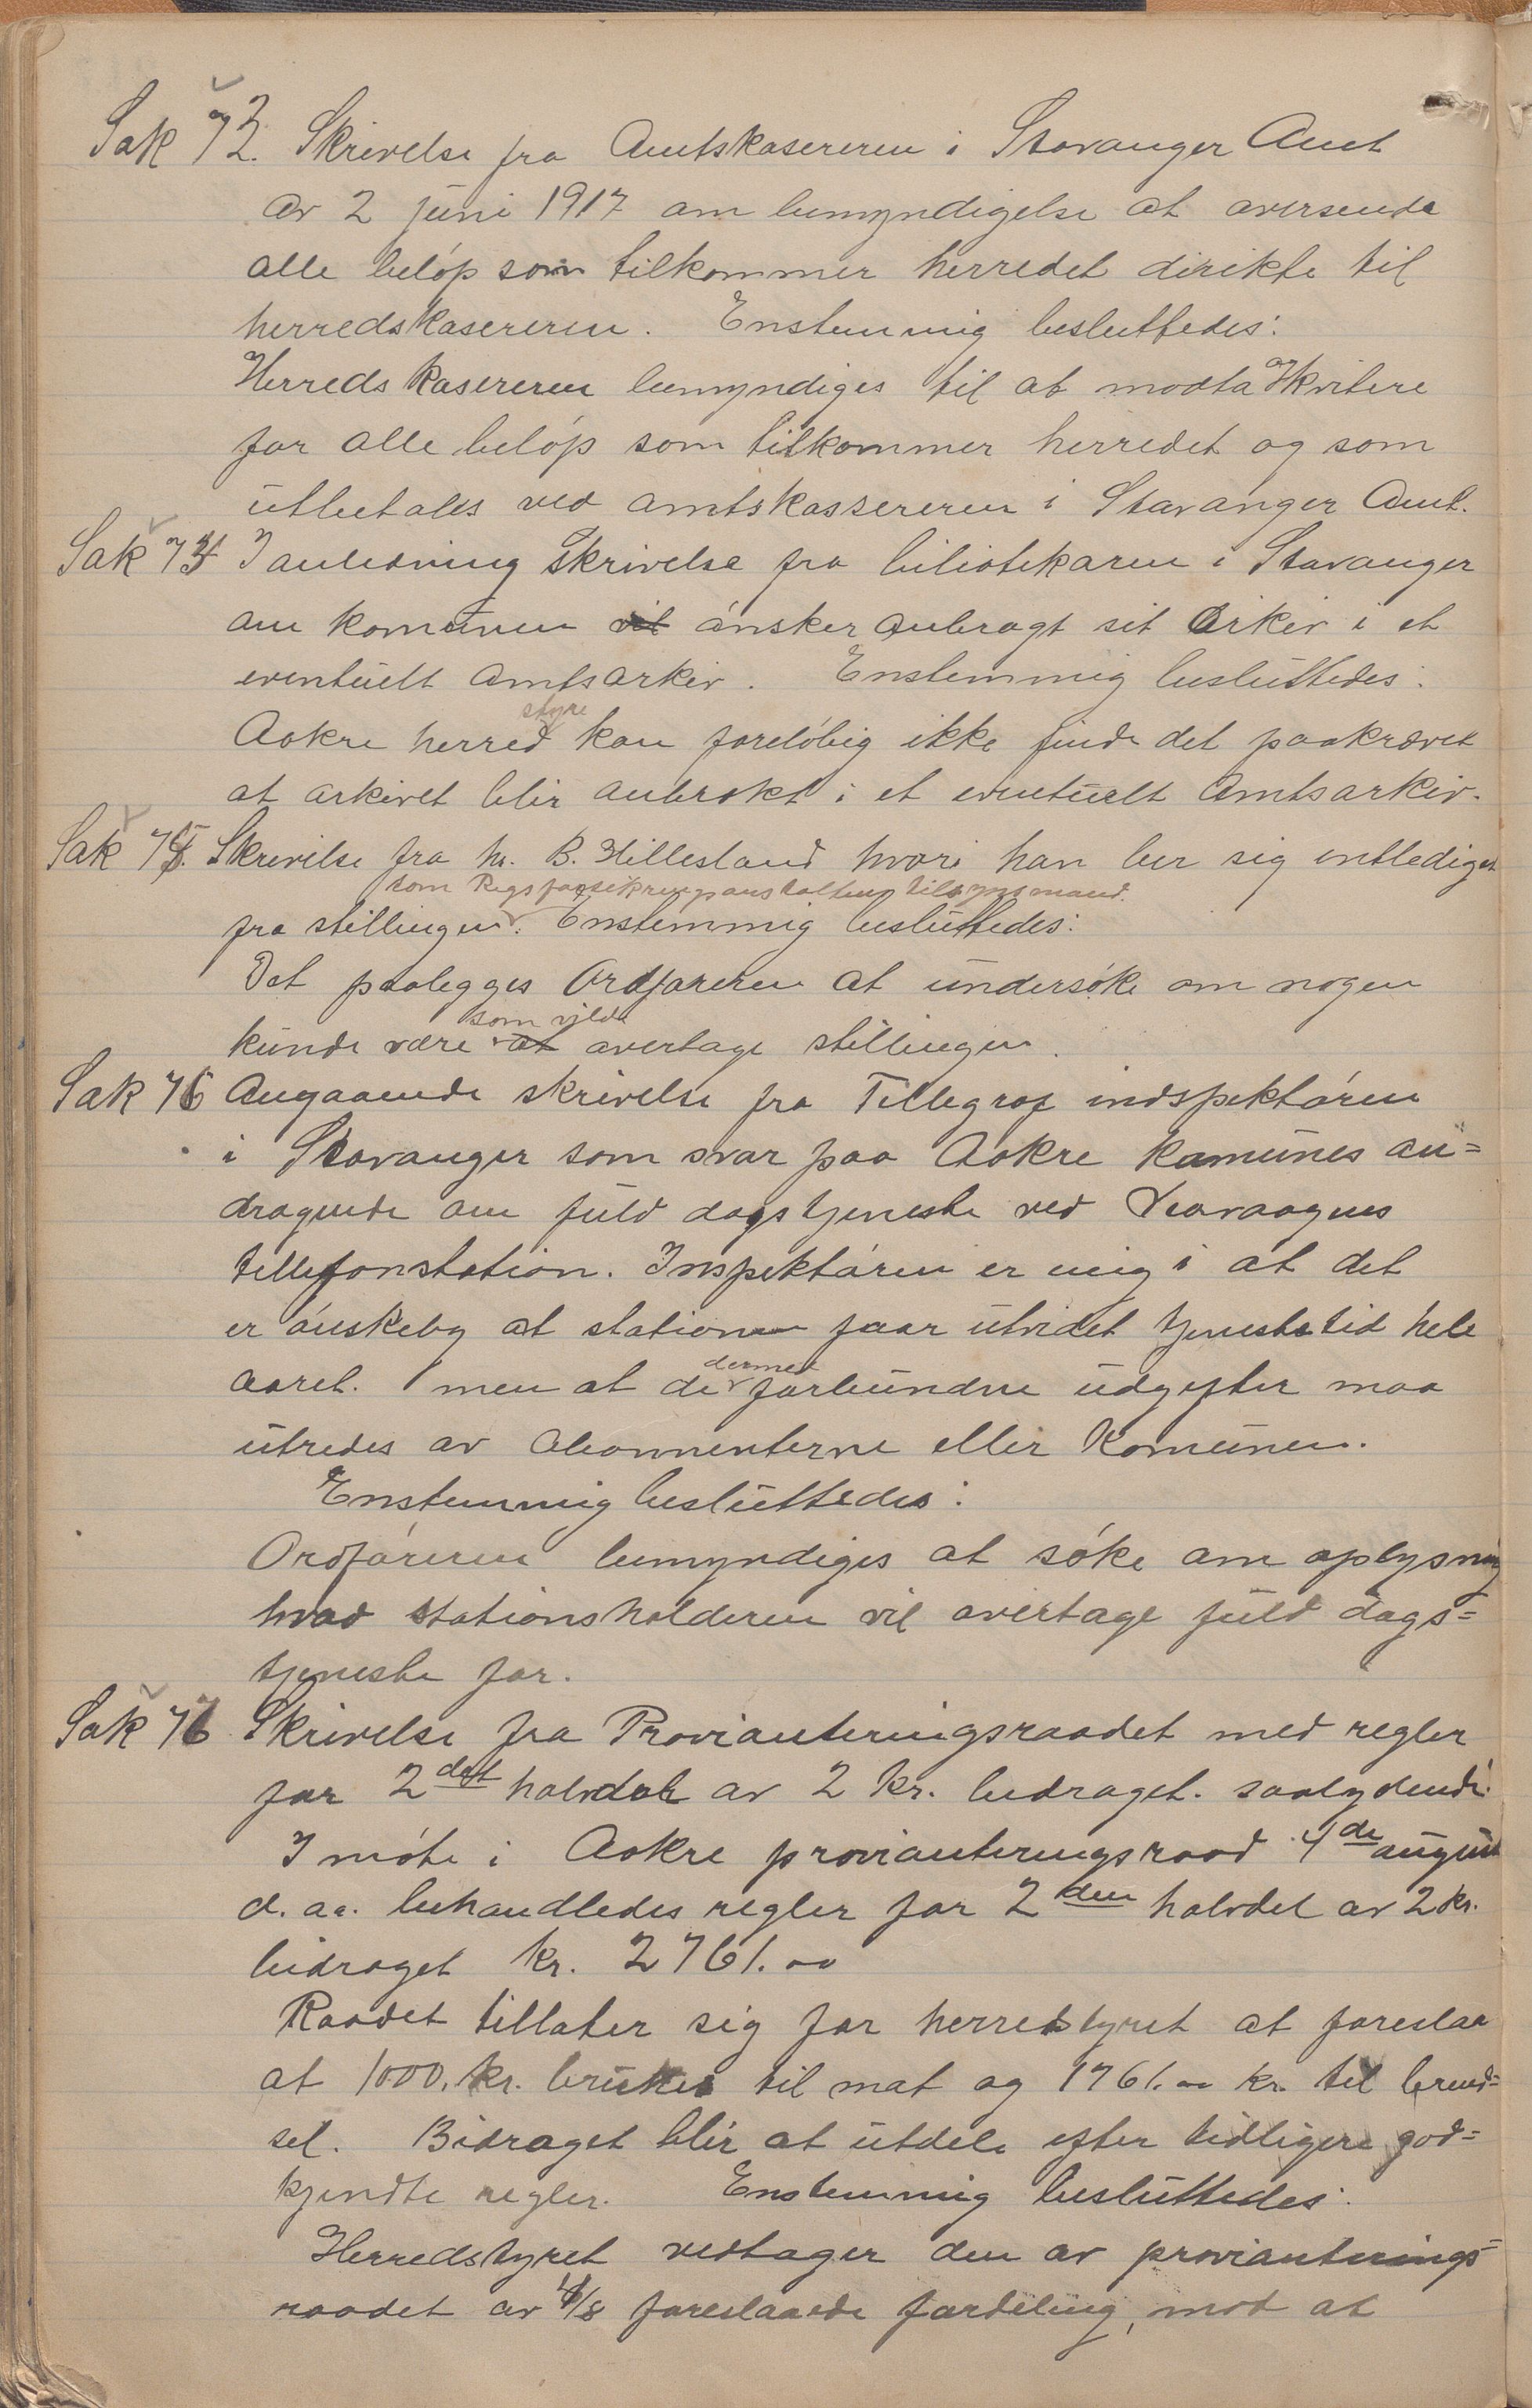 Sak 73. Skrivelse fra Amtskasereren i Stavanger Amt
av 2 juni 1917 om bemyndigelse at oversende
alle beløp som tilkommer herredet direkte til
herredskasereren. Enstemmig besluttedes:
Herredskasereren bemyndiges til at modta og kvitere
for alle beløp som tilkommer herredet og som
utbetales ved amtskassereren i Stavanger Amt.
Sak 74 I anledning skrivelse fra biliotekaren i Stavanger
om komunen vil ønsker anbragt sit arkiv i et
eventuelt amtsarkiv. Enstemmig besluttedes:
Aakre herredstyre kan foreløbig ikke finde det paakrævet
at arkivet blir anbrakt i et eventuelt Amtsarkiv.
Sak 75. Skrivelse fra hr. B. Hillesland hvori han ber sig entlediget
som Rigsforsikringsanstaltens tilsynsmand.
fra stillingen. Enstemmig besluttedes:
Det paalegges Ordføreren at undersøke om nogen
som vilde
kunde være at overtage stillingen.
Sak 76 Angaaende skrivelse fra Tillegraf indspektøren
i Stavanger som svar paa Aakre komunes an=
dragende om fuld dagstjeneste ved Veavaagnes
tillefonstation. Inspektøren er enig i at det
er ønskelig at stationen faar utvidet tjenestetid hele
aaret. men at de dermed forbundne udgifter maa
utredes av abonnenterne eller komunen.
Enstemmig besluttedes:
Ordføreren bemyndiges at søke om oplysning
hvad stationsholderen vil overtage fuld dags=
tjeneste for.
Sak 77 Skrivelse fra Provianteringsraadet med regler
for 2det halvdel av 2 kr. bidraget. saalydende:
I møte i Aakre provianteringsraad 4de august
d. aa. behandledes regler for 2den halvdel av 2 kr.
bidraget kr. 2761.00
Raadet tillater sig for herredstyret at foreslaa
at 1000. kr. brukes til mat og 1761.00 kr. til brend=
sel. Bidraget blir at utdele efter tidligere god=
kjendte regler. Enstemmig besluttedes:
Herredstyret vedtager den av provianterings=
raadet av 4/8 foreslaaede fordeling, mod at